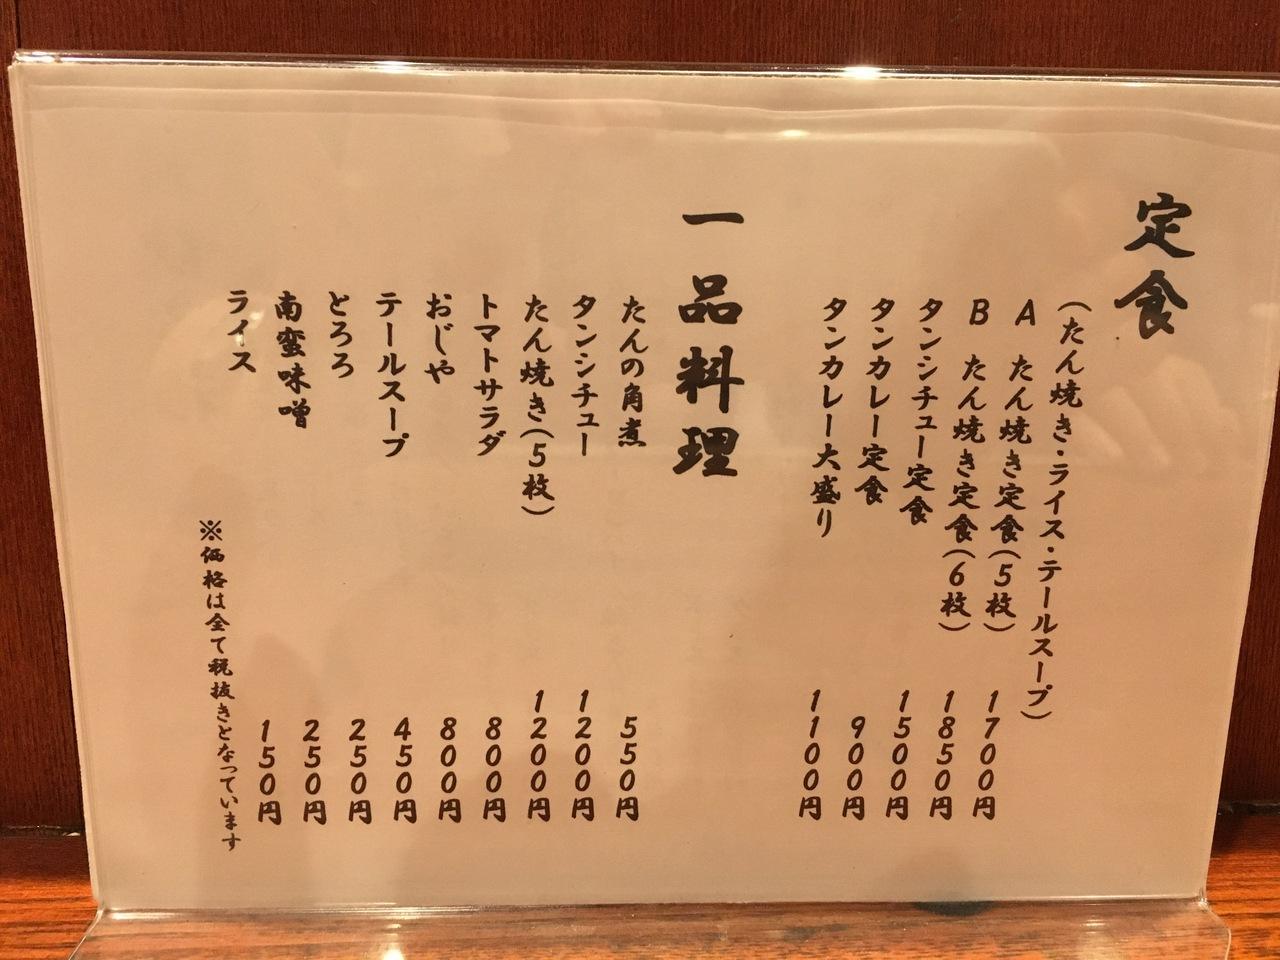 定食
(たん焼き・ライス・テールスープ)
A たん焼き定食(5枚) 1700円
B たん焼き定食(6枚) 1850円
タンシチュー定食 1500円
タンカレー定食 900円
タンカレー大盛り 1100円
一品料理
たんの角煮 550円
タンシチュー 1200円
たん焼き(5枚) 1200円
トマトサラダ 800円
おじや 800円
テールスープ 450円
とろろ 250円
南蛮味噌 250円
ライス 150円
※価格は全て税抜きとなっています